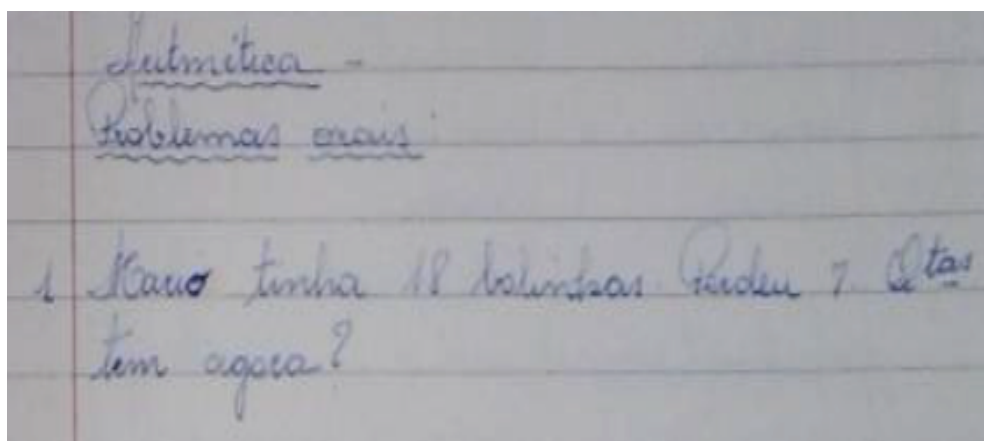 Aritmética -
Problemas orais
1 Mario tinha 18 bolinhas. Perdeu 7. Qtas
tem agora?